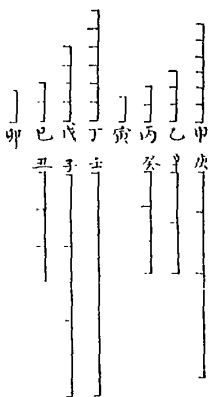 甲 乙 丙 寅 丁 戊 巳 卯
庚 辛 癸 壬 子 丑